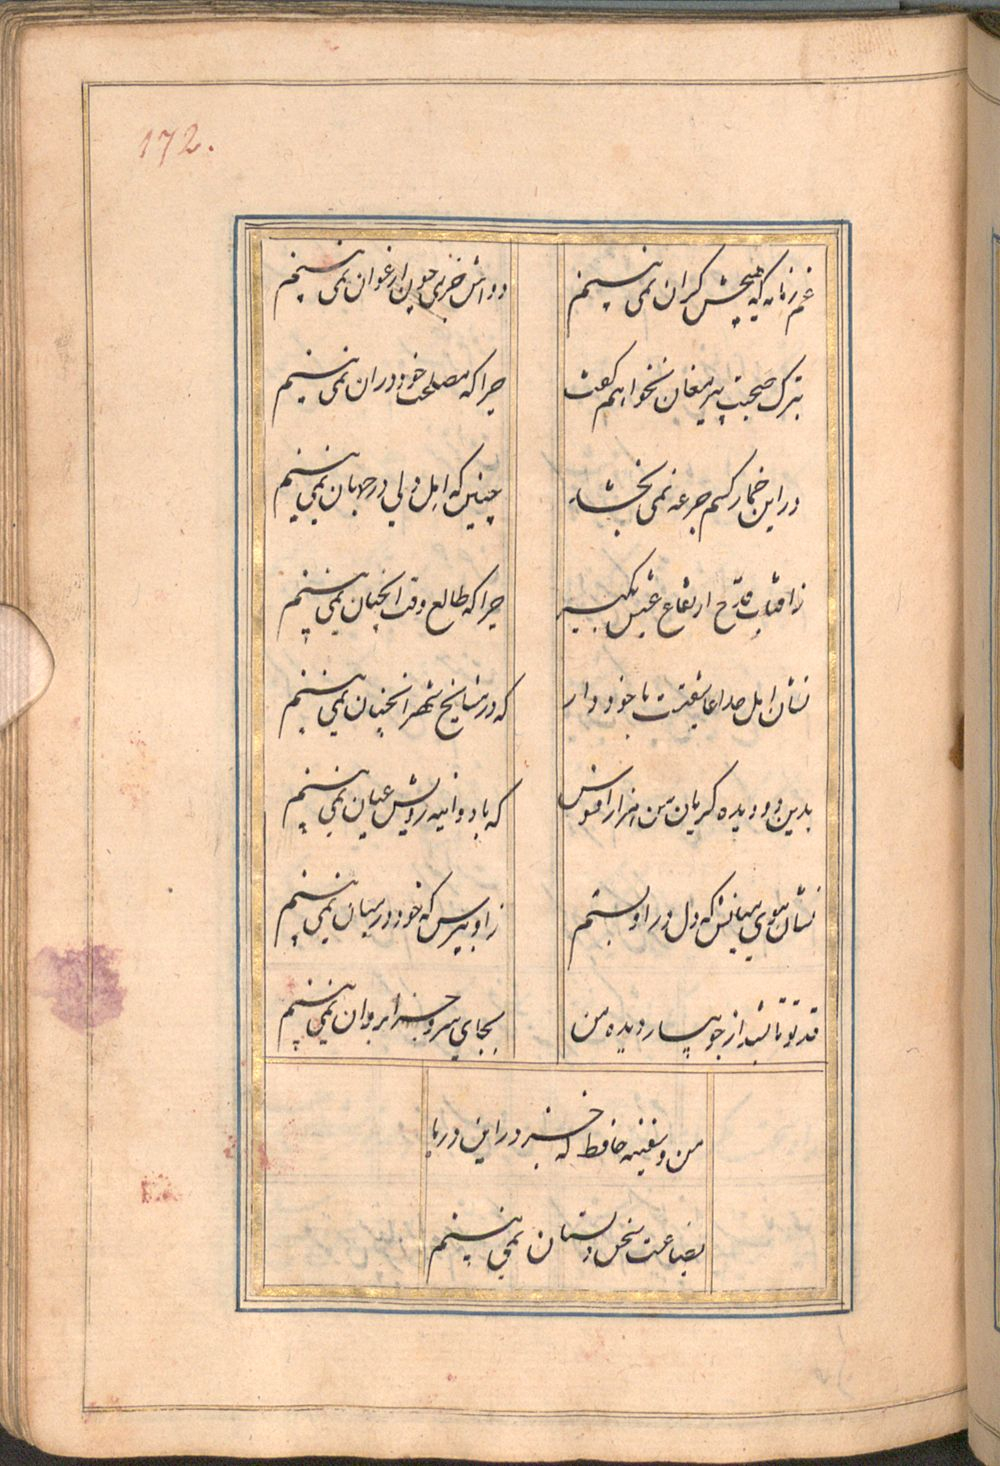 172.
غم زمانه که هیچش کران نمی بینم
دواش جز می چون ارغوان نمی بینم
بترک صحبت پیر مغان نخواهم گفت
چرا که مصلحت خود دران نمی بینم
در این خمار کسم جرعه نمی بخشد
چنین که اهل دلی در جهان نمی بینم
ز افتاب قدح ارتفاع عیش بگیر
چرا که طالع وقت انچنان نمی بینم
نشان اهل خدا عاشقیست با خود دار
که در مشایخ شهر انچنان نمی بینم
بدین دو دیده گریان من هزار افسوس
که با دو اینه رویش عیان نمی بینم
نشان موی میانش که دل در او بستم
ز او مپرس که خود در میان نمی بینم
قد تو تا بشد از جویبار دیده من
بجای سرو جز اب روان نمی بینم
من و سفینه حافظ که جز در این دریا
بضاعت سخن دلستان نمی بینم